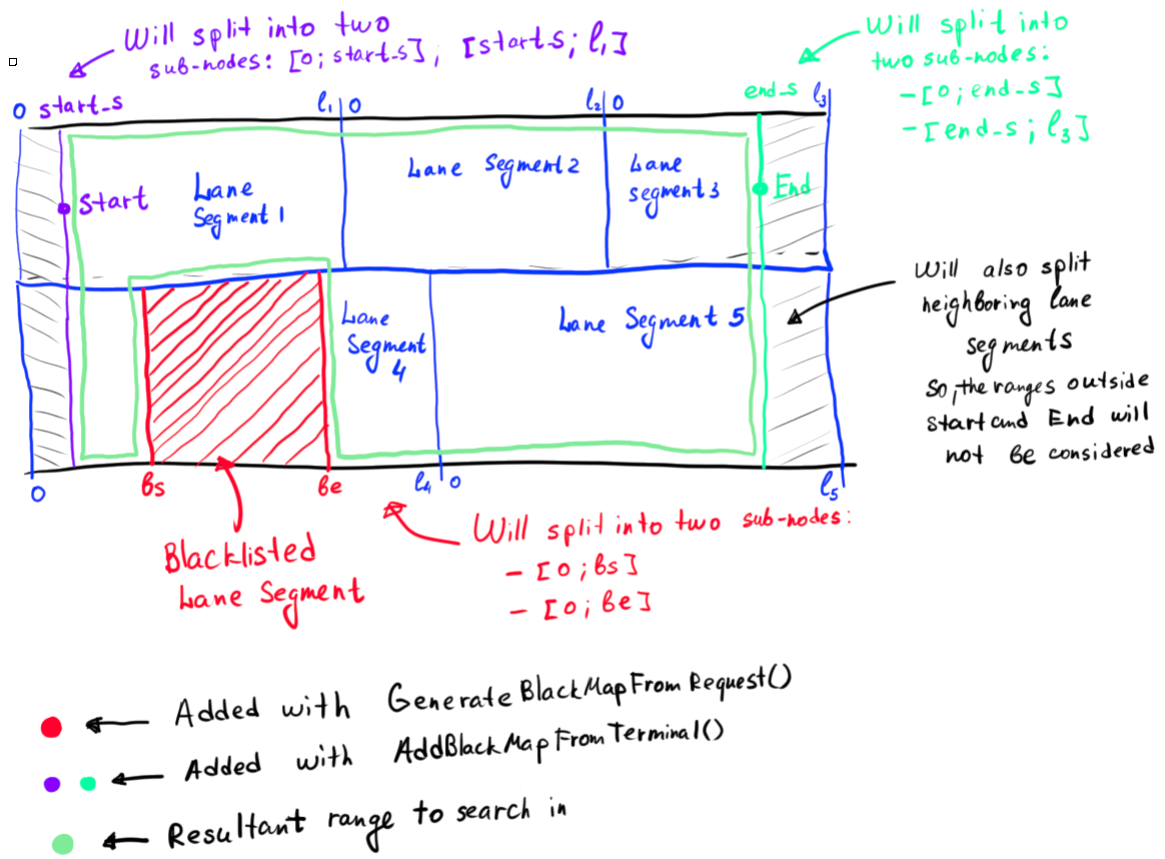 Will split into two
sub-nodes: [0; start_s], [start_s; l1]
Will split into
two sub-nodes:
- [0; end_s]
- [end_s; l3]
0 start_s l1 0 l2 0 end_s l3
Start
Lane
Segment 1
Lane Segment 2
Lane
segment 3
End
Will also split
neighboring lane
segments
So, the ranges outside
Start and End will
not be considered
Lane
Segment
4
Lane Segment 5
0 bs be l4 0 l5
Blacklisted
Lane Segment
Will split into two sub-nodes:
- [0; bs]
- [0; be]
Added with GenerateBlackMapFromRequest()
Added with AddBlackMapFromTerminal()
Resultant range to search in